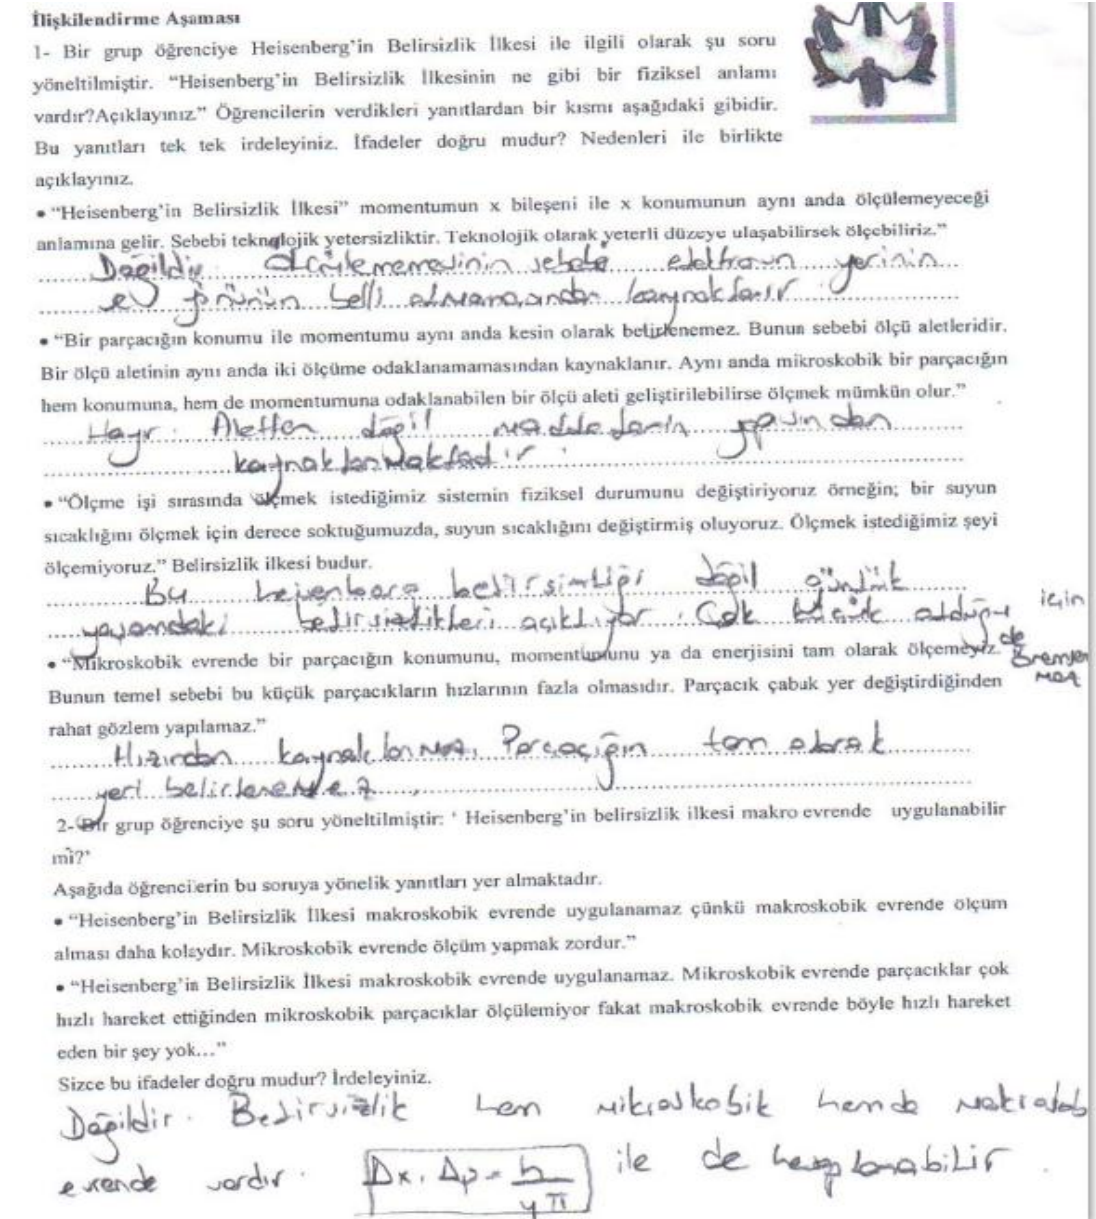 İlişkilendirme Aşaması
1- Bir grup öğrenciye Heisenberg'in Belirsizlik İlkesi ile ilgili olarak şu soru
yöneltilmiştir. “Heisenberg'in Belirsizlik İlkesinin ne gibi bir fiziksel anlamı
vardır?Açıklayınız.” Öğrencilerin verdikleri yanıtlardan bir kısmı aşağıdaki gibidir.
Bu yanıtları tek tek irdeleyiniz. İfadeler doğru mudur? Nedenleri ile birlikte
açıklayınız.
• “Heisenberg'in Belirsizlik İlkesi” momentumun x bileşeni ile x konumunun aynı anda ölçülemeyeceği
anlamına gelir. Sebebi teknolojik yetersizliktir. Teknolojik olarak yeterli düzeye ulaşabilirsek ölçebiliriz.”
Değildir. ölçülememesinin sebebi elektronun yerinin
belli olmamasından kaynaklanır.
• “Bir parçacığın konumu ile momentumu aynı anda kesin olarak belirlenemez. Bunun sebebi ölçü aletleridir.
Bir ölçü aletinin aynı anda iki ölçüme odaklanamamasından kaynaklanır. Aynı anda mikroskobik bir parçacığın
hem konumuna, hem de momentumuna odaklanabilen bir ölçü aleti geliştirilebilirse ölçmek mümkün olur.”
Hayır. Aletten değil maddelerin yapısından
kaynaklanmaktadır.
• “Ölçme işi sırasında ölçmek istediğimiz sistemin fiziksel durumunu değiştiriyoruz örneğin; bir suyun
sıcaklığını ölçmek için derece soktuğumuzda, suyun sıcaklığını değiştirmiş oluyoruz. Ölçmek istediğimiz şeyi
ölçemiyoruz.” Belirsizlik ilkesi budur.
Bu belirsizliği değil günlük
yaşamdaki belirsizlikleri açıklıyor. Çok küçük olduğu için
de önemsenmez
• “Mikroskobik evrende bir parçacığın konumunu, momentumunu ya da enerjisini tam olarak ölçemeyiz.
Bunun temel sebebi bu küçük parçacıkların hızlarının fazla olmasıdır. Parçacık çabuk yer değiştirdiğinden
rahat gözlem yapılamaz.”
Hızından kaynaklanmaz. Parçacığın tam olarak
yeri belirlenemez.
2- Bir grup öğrenciye şu soru yöneltilmiştir: ‘ Heisenberg'in belirsizlik ilkesi makro evrende uygulanabilir
mi?’
Aşağıda öğrencilerin bu soruya yönelik yanıtları yer almaktadır.
• “Heisenberg'in Belirsizlik İlkesi makroskobik evrende uygulanamaz çünkü makroskobik evrende ölçüm
alması daha kolaydır. Mikroskobik evrende ölçüm yapmak zordur.”
• “Heisenberg'in Belirsizlik İlkesi makroskobik evrende uygulanamaz. Mikroskobik evrende parçacıklar çok
hızlı hareket ettiğinden mikroskobik parçacıklar ölçülemiyor fakat makroskobik evrende böyle hızlı hareket
eden bir şey yok…”
Sizce bu ifadeler doğru mudur? İrdeleyiniz.
Değildir. Belirsizlik hem mikroskobik hemde
evrende vardır. Δx.Δp=h/4π ile de hesaplanabilir.